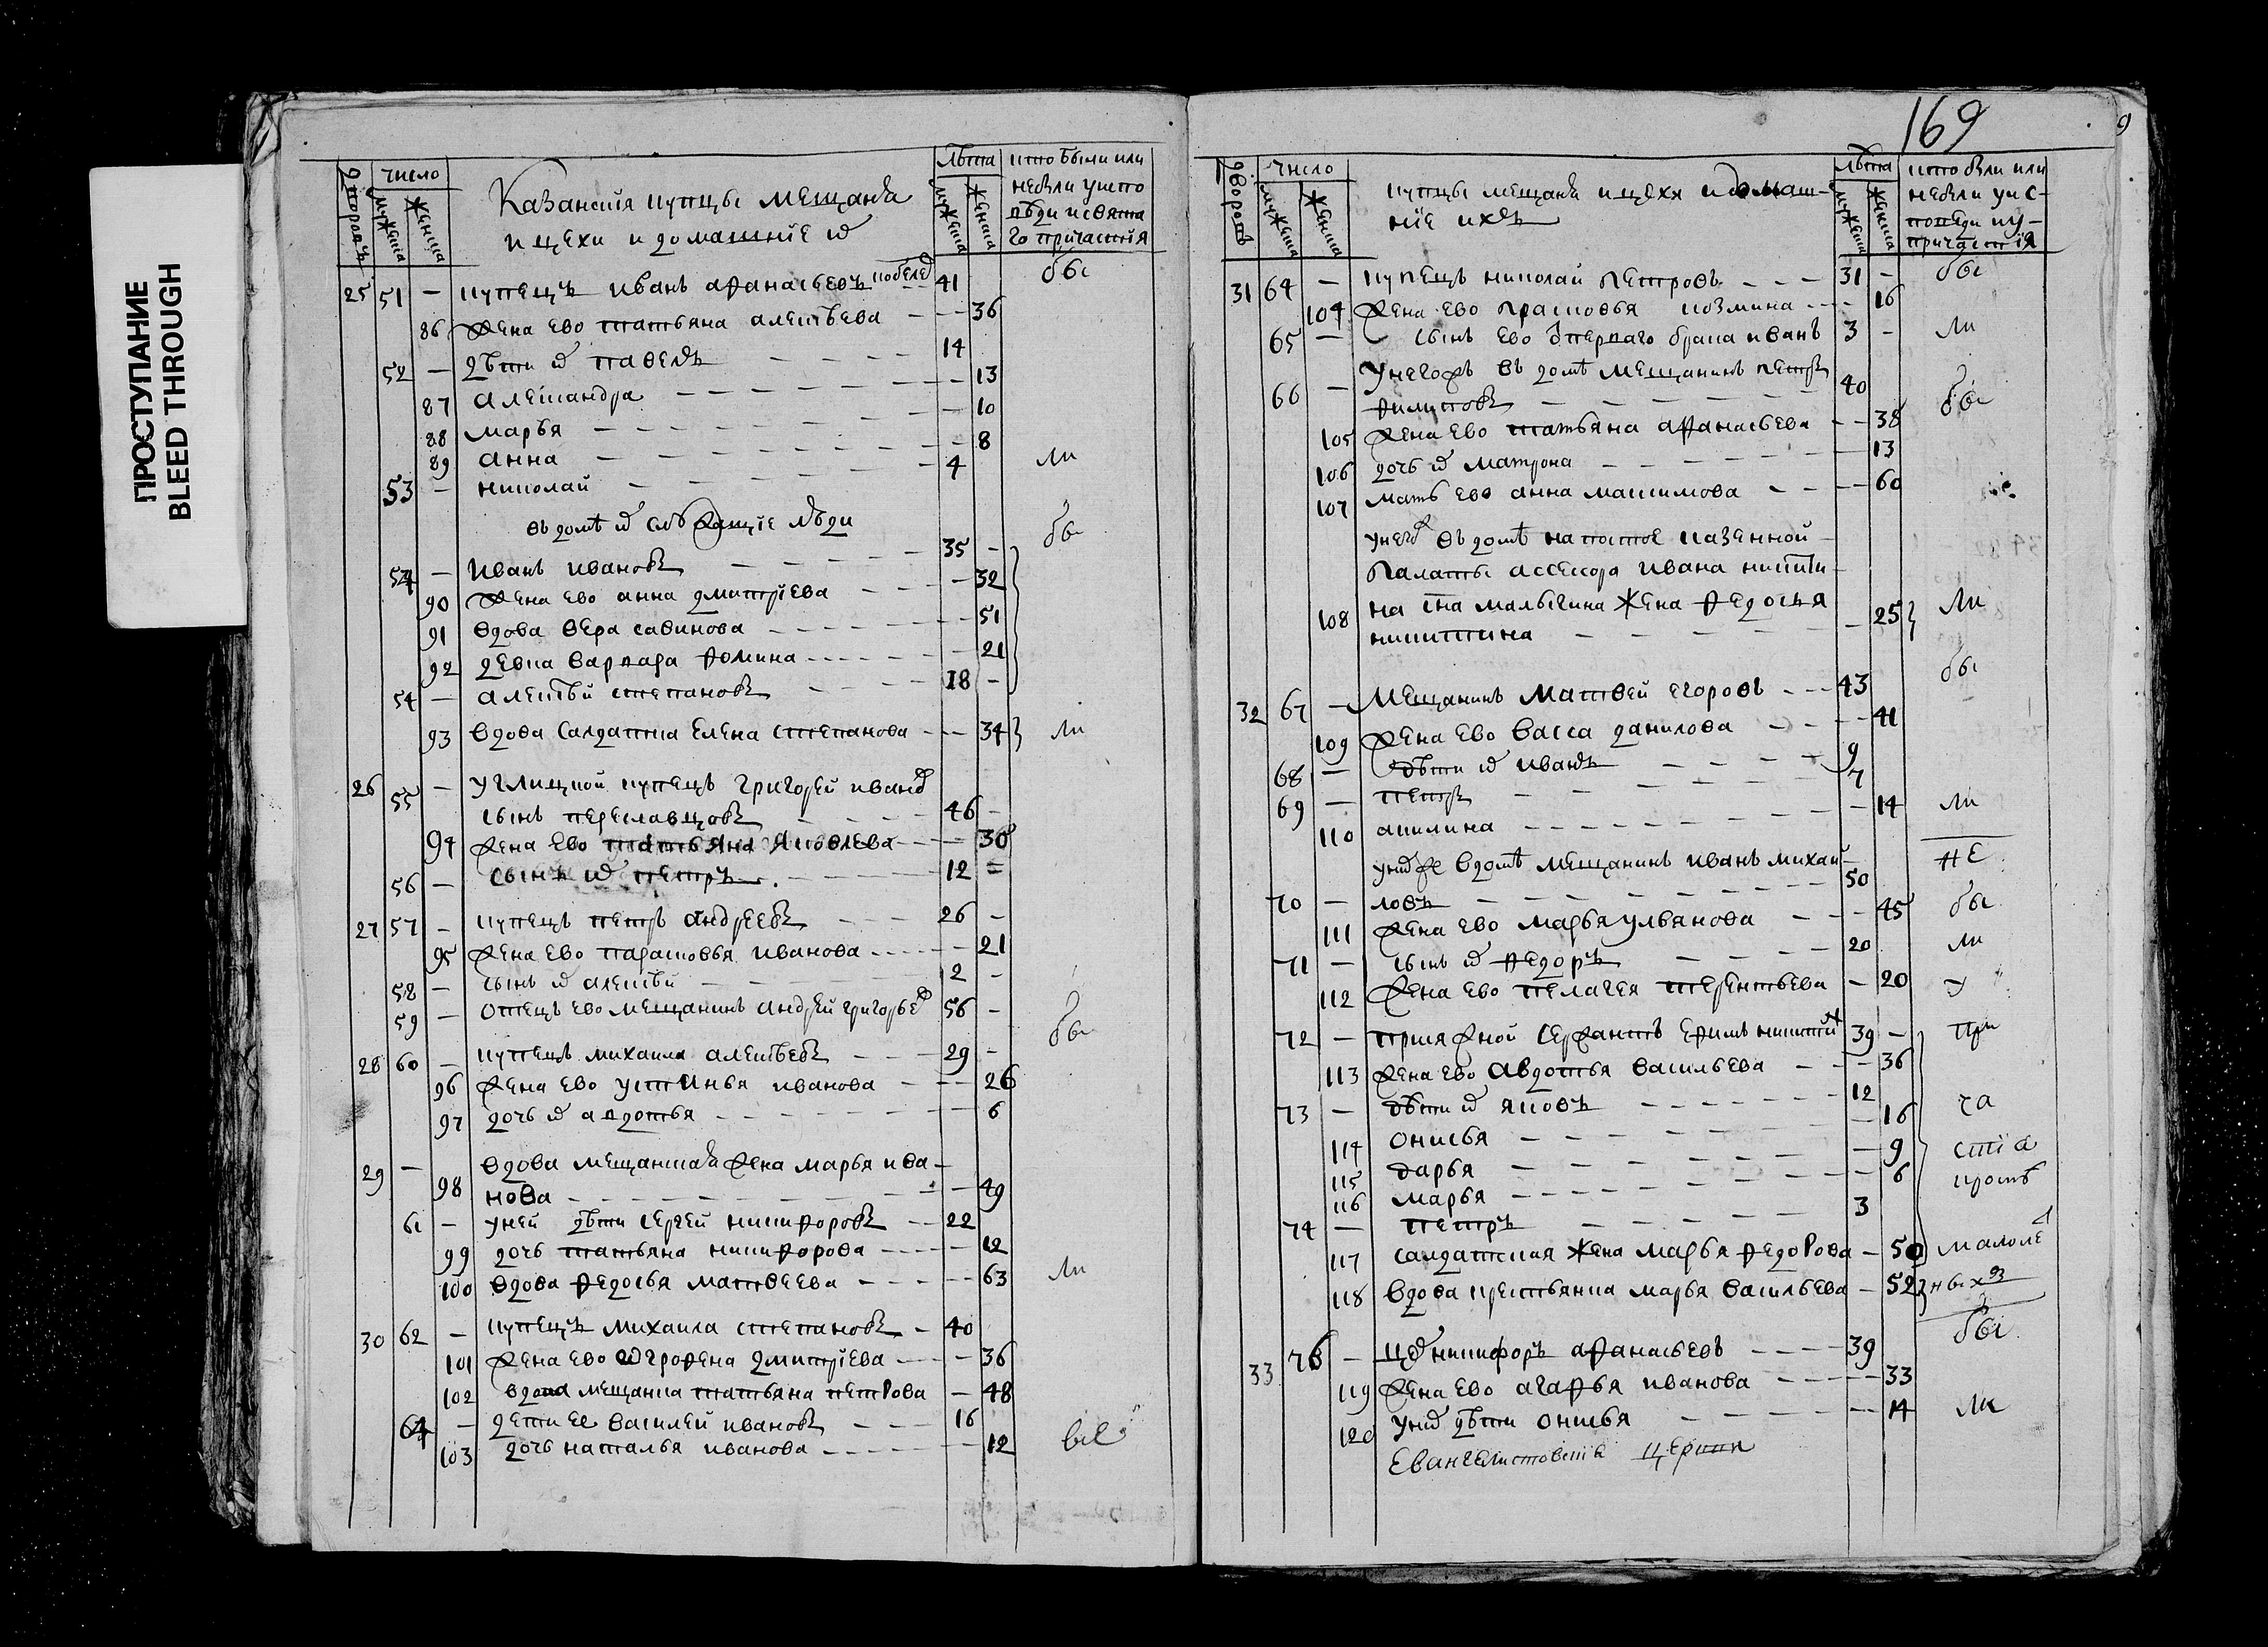 ПРОСТУПАНИЕ
BLEED THROUGH
число
мужеска
женска
Казанскiя купцы мещаня
и цехи и домашнiе их
лѣта
мужеска
женска
кто были или
небыли у испо
вѣди и свята
го причастiя
25 51 — купецъ иванъ афанасьевъ 41 бы
86 жена ево татьяна алексѣева — 36
52 — дѣти их павелъ — 14
87 александра — 13
88 марья — 10
89 анна — 8
53 — николай — 4 ли
въ домѣ их служащiе люди бы
54 — иванъ ивановъ — 35 —
90 жена ево анна дмитрiева — 32
91 вдова вера савинова — 51
92 девка варвара фомина — 21
54 — алексѣй степановъ — 18 —
93 вдова салдатка елена степанова — 34 ли
26 55 — углицкой купецъ григорей иванов
сынъ переславцовъ — 46 —
94 жена ево татьяна яковлева — 30
56 — сынъ их петръ — 12 =
27 57 — купецъ петръ андреевъ — 26 —
95 жена ево парасковья иванова — 21
58 — сынъ их алексѣй — 2 —
59 — отецъ ево мещанинъ андрей григорьев 56 —
28 60 — купецъ михаила алексѣевъ — 29 — бы
96 жена ево устинья иванова — 26
97 дочь их авдотья — 6
29 — вдова мещанская жена марья ива-
98 нова — 49
61 — уней дѣти сергей никифоровъ — 22
99 дочь татьяна никифорова — 12
100 вдова федосья матвеева — 63 ли
30 62 — купецъ михаила степановъ — 40
101 жена ево огрофена дмитрiева — 36
102 вдова мещанка татьяна петрова — 48
64 — дети ее василей ивановъ — 16
103 дочь наталья иванова — 12 все
169
9
дворовъ
число
мужеска
женска
купцы мещаня и цехя и домаш-
нiе ихъ
лѣта
мужеска
женска
кто были или
небыли у ис-
поведи и у-
причастiя
31 64 — купецъ николай петровъ — 31 — бы
104 жена ево прасковья козмина — 16
65 — сынъ ево з перваго брака иванъ 3 — ли
Унегожъ въ домѣ мещанинъ петръ
66 — филиповъ — 40 бы
105 жена ево татьяна афанасьева — 38
106 дочь их матрона — 13
107 мать ево анна максимова — 60
унего въ домѣ на постое казенной
палаты ассесора ивана никити-
108 на сна малыгина жена федосья
никитина — 25 ли
32 67 — мещанинъ матвей егоровъ — 43 бы
109 жена ево васса данилова — 41
68 — дѣти их иванъ — 9
69 — петръ — 7
110 акилина — 14 ли
у них же в домѣ мещанинъ иванъ михай- не
70 — ловъ — 50
111 жена ево марья ульянова — 45 бы
71 — сынъ их федоръ — 20 ли
112 жена ево пелагея терентьева — 20 у
72 — присяжной сержантъ ефимъ никитин 39 — при
113 жена ево авдотья васильева — 36
73 — дѣти их яковъ — 12 ча
114 онисья — 16
115 дарья — 9 стiя
116 марья — 6 кромѣ
74 — петръ — 3
117 салдатская жена марья федорова — 50 малолѣт
118 вдова крестьянка марья васильева — 52 ныхъ
33 76 — цех никифоръ афанасьевъ — 39 бы
119 жена ево агафья иванова — 33
120 у них дѣти онисья — 14 ли
Евангелистовскiя церкви